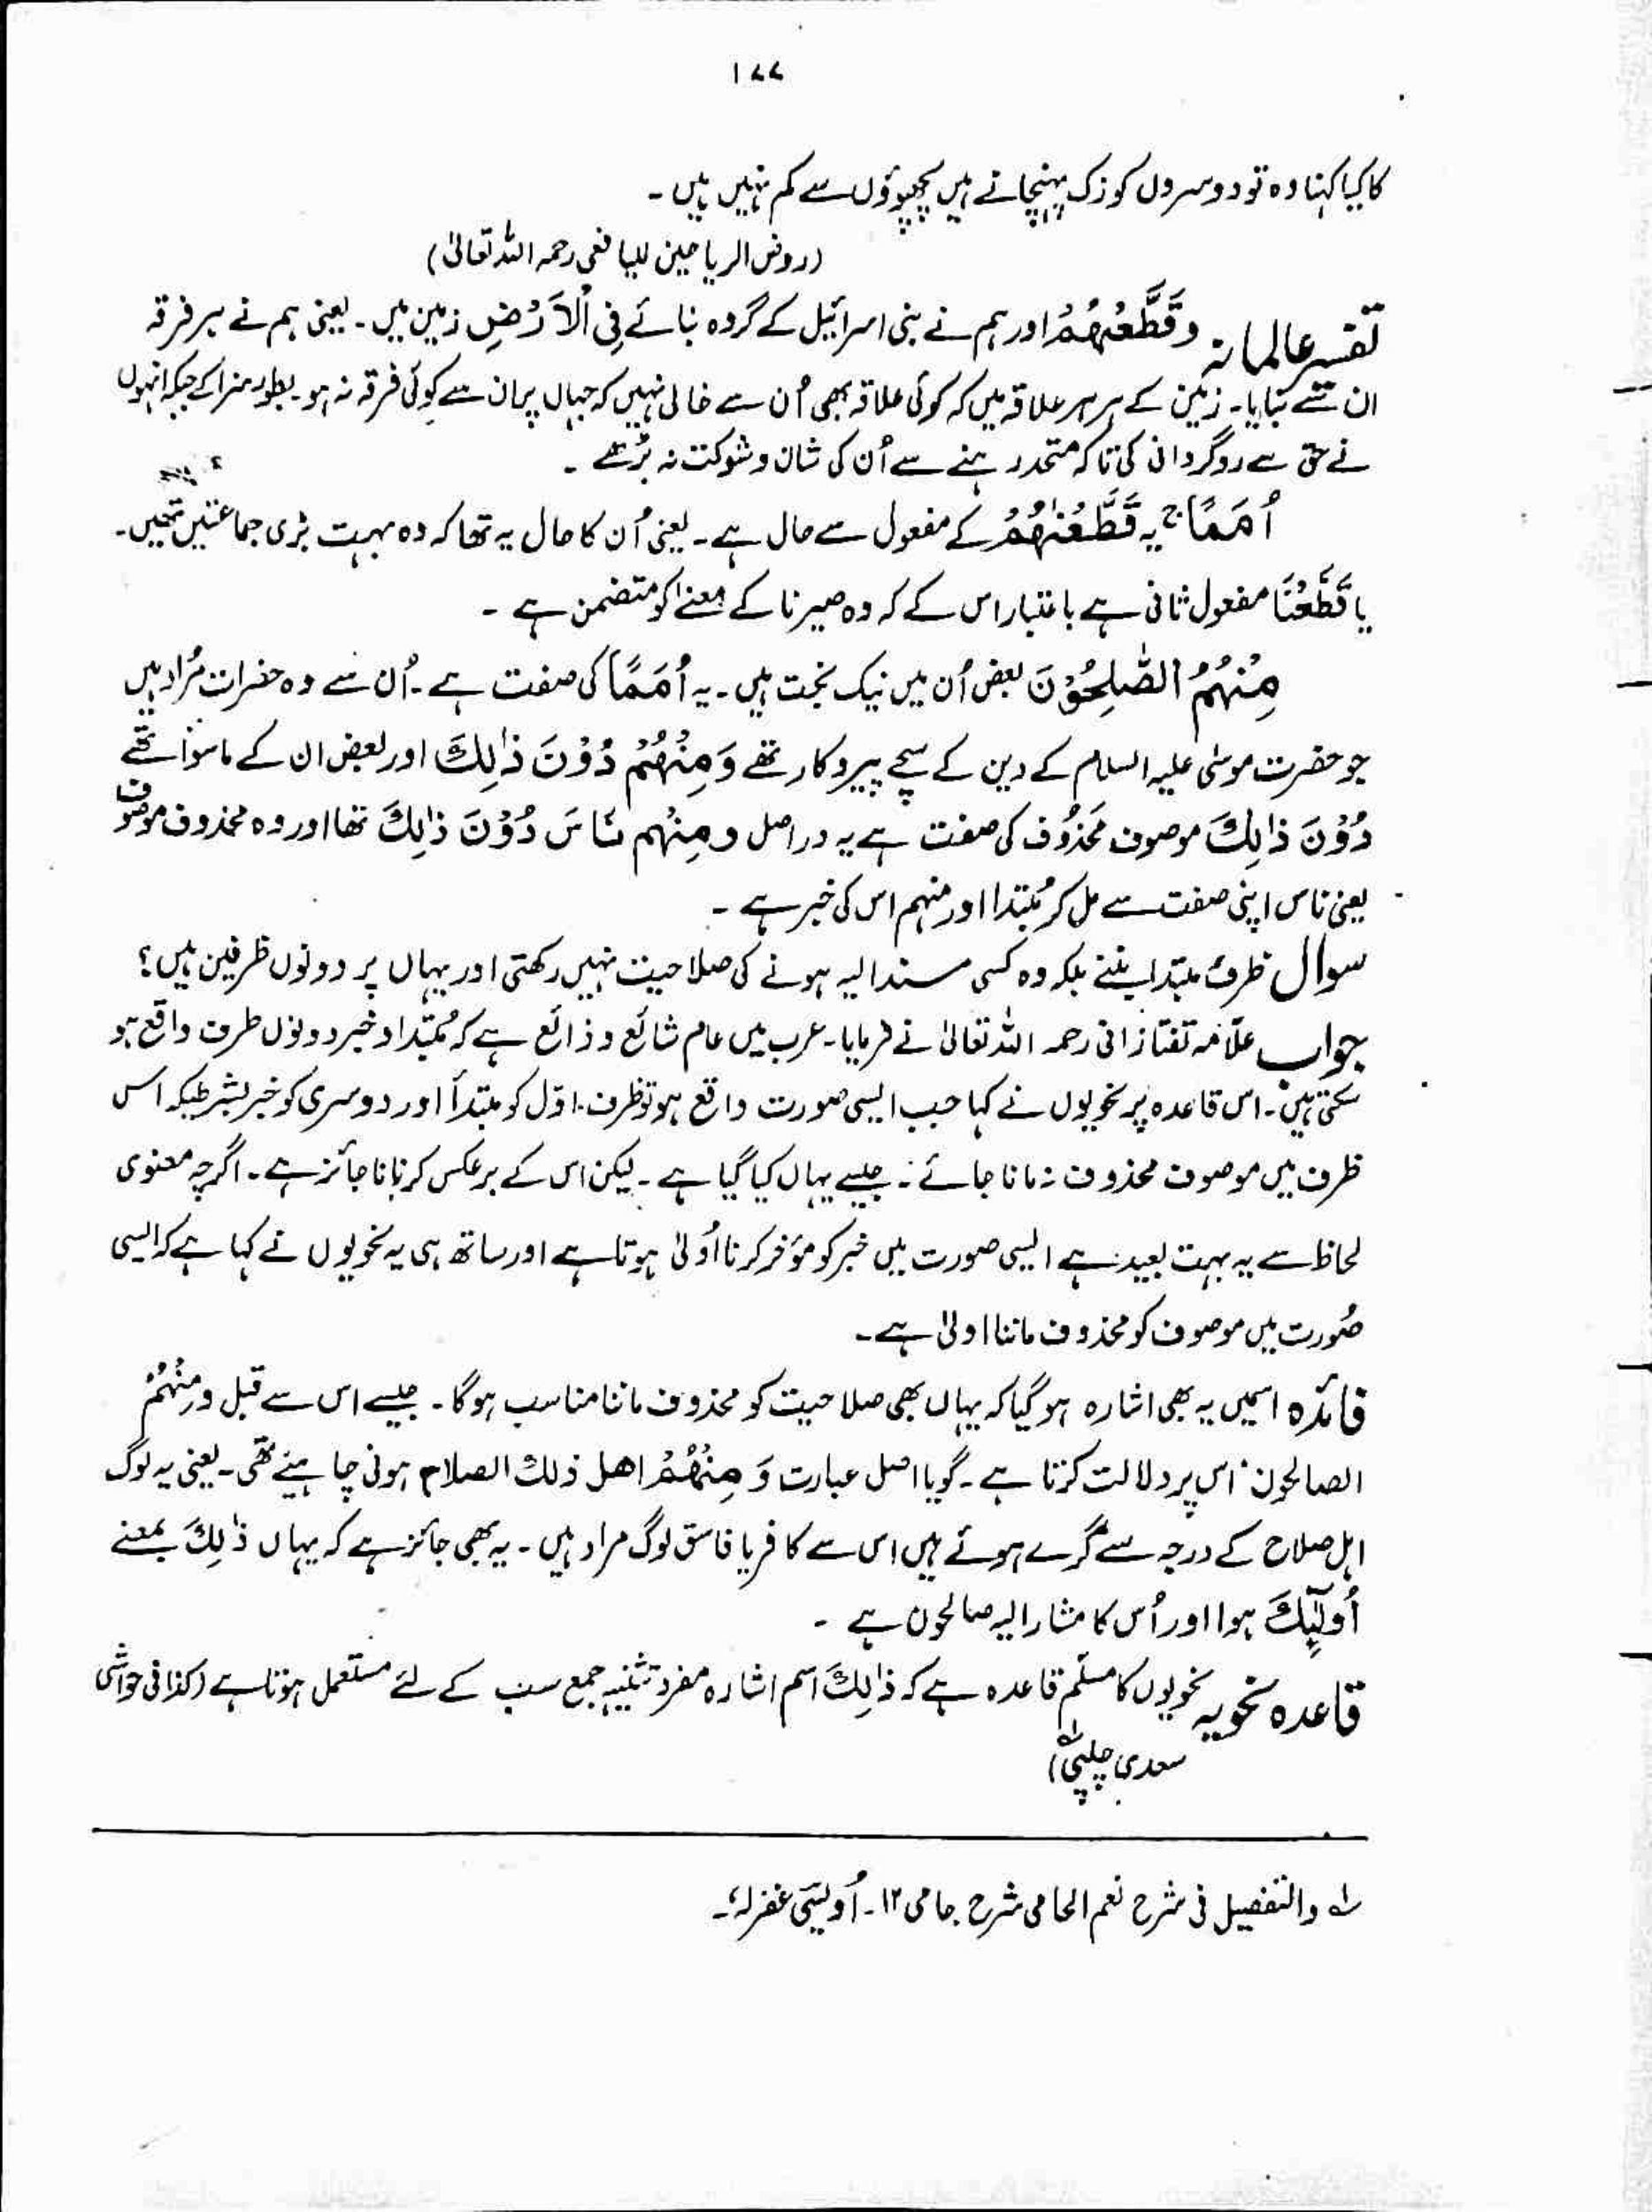 ۱۷۷
کا کیا کہنا وہ تو دوسروں کو زک پہنچانے میں بچھوؤں سے کم نہیں ہیں۔
(روض الریاحین للیافعی رحمہ اللہ تعالیٰ)
تفسیر عالمانہ وَقَطَّعْنٰهُمْ اور ہم نے بنی اسرائیل کے گروہ بنائے فِی الْاَرْضِ زمین میں۔ یعنی ہم نے ہر فرقہ
ان سے بنایا۔ زمین کے ہر ہر علاقہ میں کہ کوئی علاقہ بھی اُن سے خالی نہیں کہ جہاں پر ان سے کوئی فرقہ نہ ہو۔ بطور سزا کے جبکہ انہوں
نے حق سے روگردانی کی تاکہ متحد رہنے سے اُن کی شان و شوکت نہ بڑھے۔
اُمَمًا ج یہ قَطَّعْنٰهُمْ کے مفعول سے حال ہے۔ یعنی اُن کا حال یہ تھا کہ وہ بہت بڑی جماعتیں تھیں۔
یا قَطَّعْنَا مفعول ثانی ہے باعتبار اس کے کہ وہ صیرنا کے معنےٰ کو متضمن ہے۔
مِنْهُمُ الصّٰلِحُوْنَ بعض اُن میں نیک بخت ہیں۔ یہ اُمَمًا کی صفت ہے۔ اُن سے وہ حضرات مُراد ہیں
جو حضرت موسٰی علیہ السلام کے دین کے سچے پیروکار تھے وَمِنْهُمْ دُوْنَ ذٰلِكَ اور بعض ان کے ماسوا تھے
دُوْنَ ذٰلِكَ موصوف مَحذُوف کی صفت ہے یہ دراصل و مِنْهُم نَاسَ دُوْنَ ذٰلِكَ تھا اور وہ محذوف موصوف
یعنی ناس اپنی صفت سے مل کر مُبتدا اور منہم اس کی خبر ہے۔
سوال ظرف مبتدا بننے بلکہ وہ کسی مسند الیہ ہونے کی صلاحیت نہیں رکھتی اور یہاں پر دونوں ظرفین ہیں؟
جواب علّامہ تفتازانی رحمہ اللہ تعالیٰ نے فرمایا۔ عرب میں عام شائع و ذائع ہے کہ مُبتدا و خبر دونوں ظرف واقع ہو
سکتی ہیں۔ اس قاعدہ پر نحویوں نے کہا جب ایسی صورت واقع ہو تو ظرف اوّل کو مبتدأ اور دوسری کو خبر بشرطیکہ اس
ظرف میں موصوف محذوف نہ مانا جائے۔ جیسے یہاں کیا گیا ہے۔ لیکن اس کے برعکس کرنا ناجائز ہے۔ اگرچہ معنوی
لحاظ سے یہ بہت بعید ہے ایسی صورت میں خبر کو مؤخر کرنا اَولیٰ ہوتا ہے اور ساتھ ہی یہ نحویوں نے کہا ہے کہ ایسی
صُورت میں موصوف کو محذوف ماننا اولیٰ ہے۔
فائدہ اسمیں یہ بھی اشارہ ہو گیا کہ یہاں بھی صلاحیت کو محذوف ماننا مناسب ہوگا۔ جیسے اس سے قبل ومِنْهُمْ
الصالحون اس پر دلالت کرتا ہے۔ گویا اصل عبارت وَ مِنْهُمْ اهل ذلك الصلاح ہونی چاہیئے تھی۔ یعنی یہ لوگ
اہل صلاح کے درجہ سے گرے ہوئے ہیں اس سے کافر یا فاسق لوگ مراد ہیں۔ یہ بھی جائز ہے کہ یہاں ذٰلِكَ بمعنے
اُولٰٓئِكَ ہوا اور اُس کا مشار الیہ صالحون ہے۔
قاعدہ نحویہ نحویوں کا مسلّم قاعدہ ہے کہ ذٰلِكَ اسم اشارہ مفرد تثنیہ جمع سب کے لئے مستعمل ہوتا ہے (کذا فی حواشی
سعدی چلپی ؎۱)
؎۱ والتفصیل فی شرح نعم الحامی شرح جامی ۱۲۔ اُویسی غفرلہٗ۔